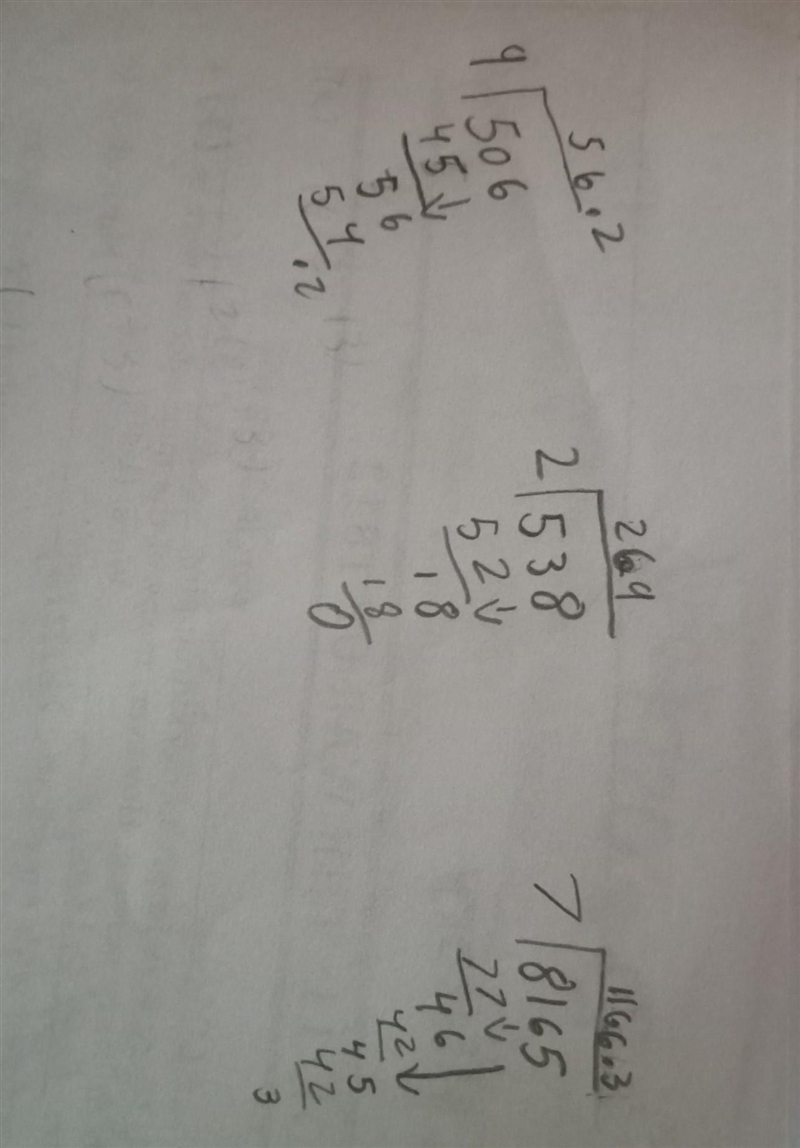 56.2
9 506
45↓
56
54
.2
269
2 538
52↓
18
18
0
1166.3
7 8165
77↓
46
42↓
45
42
3